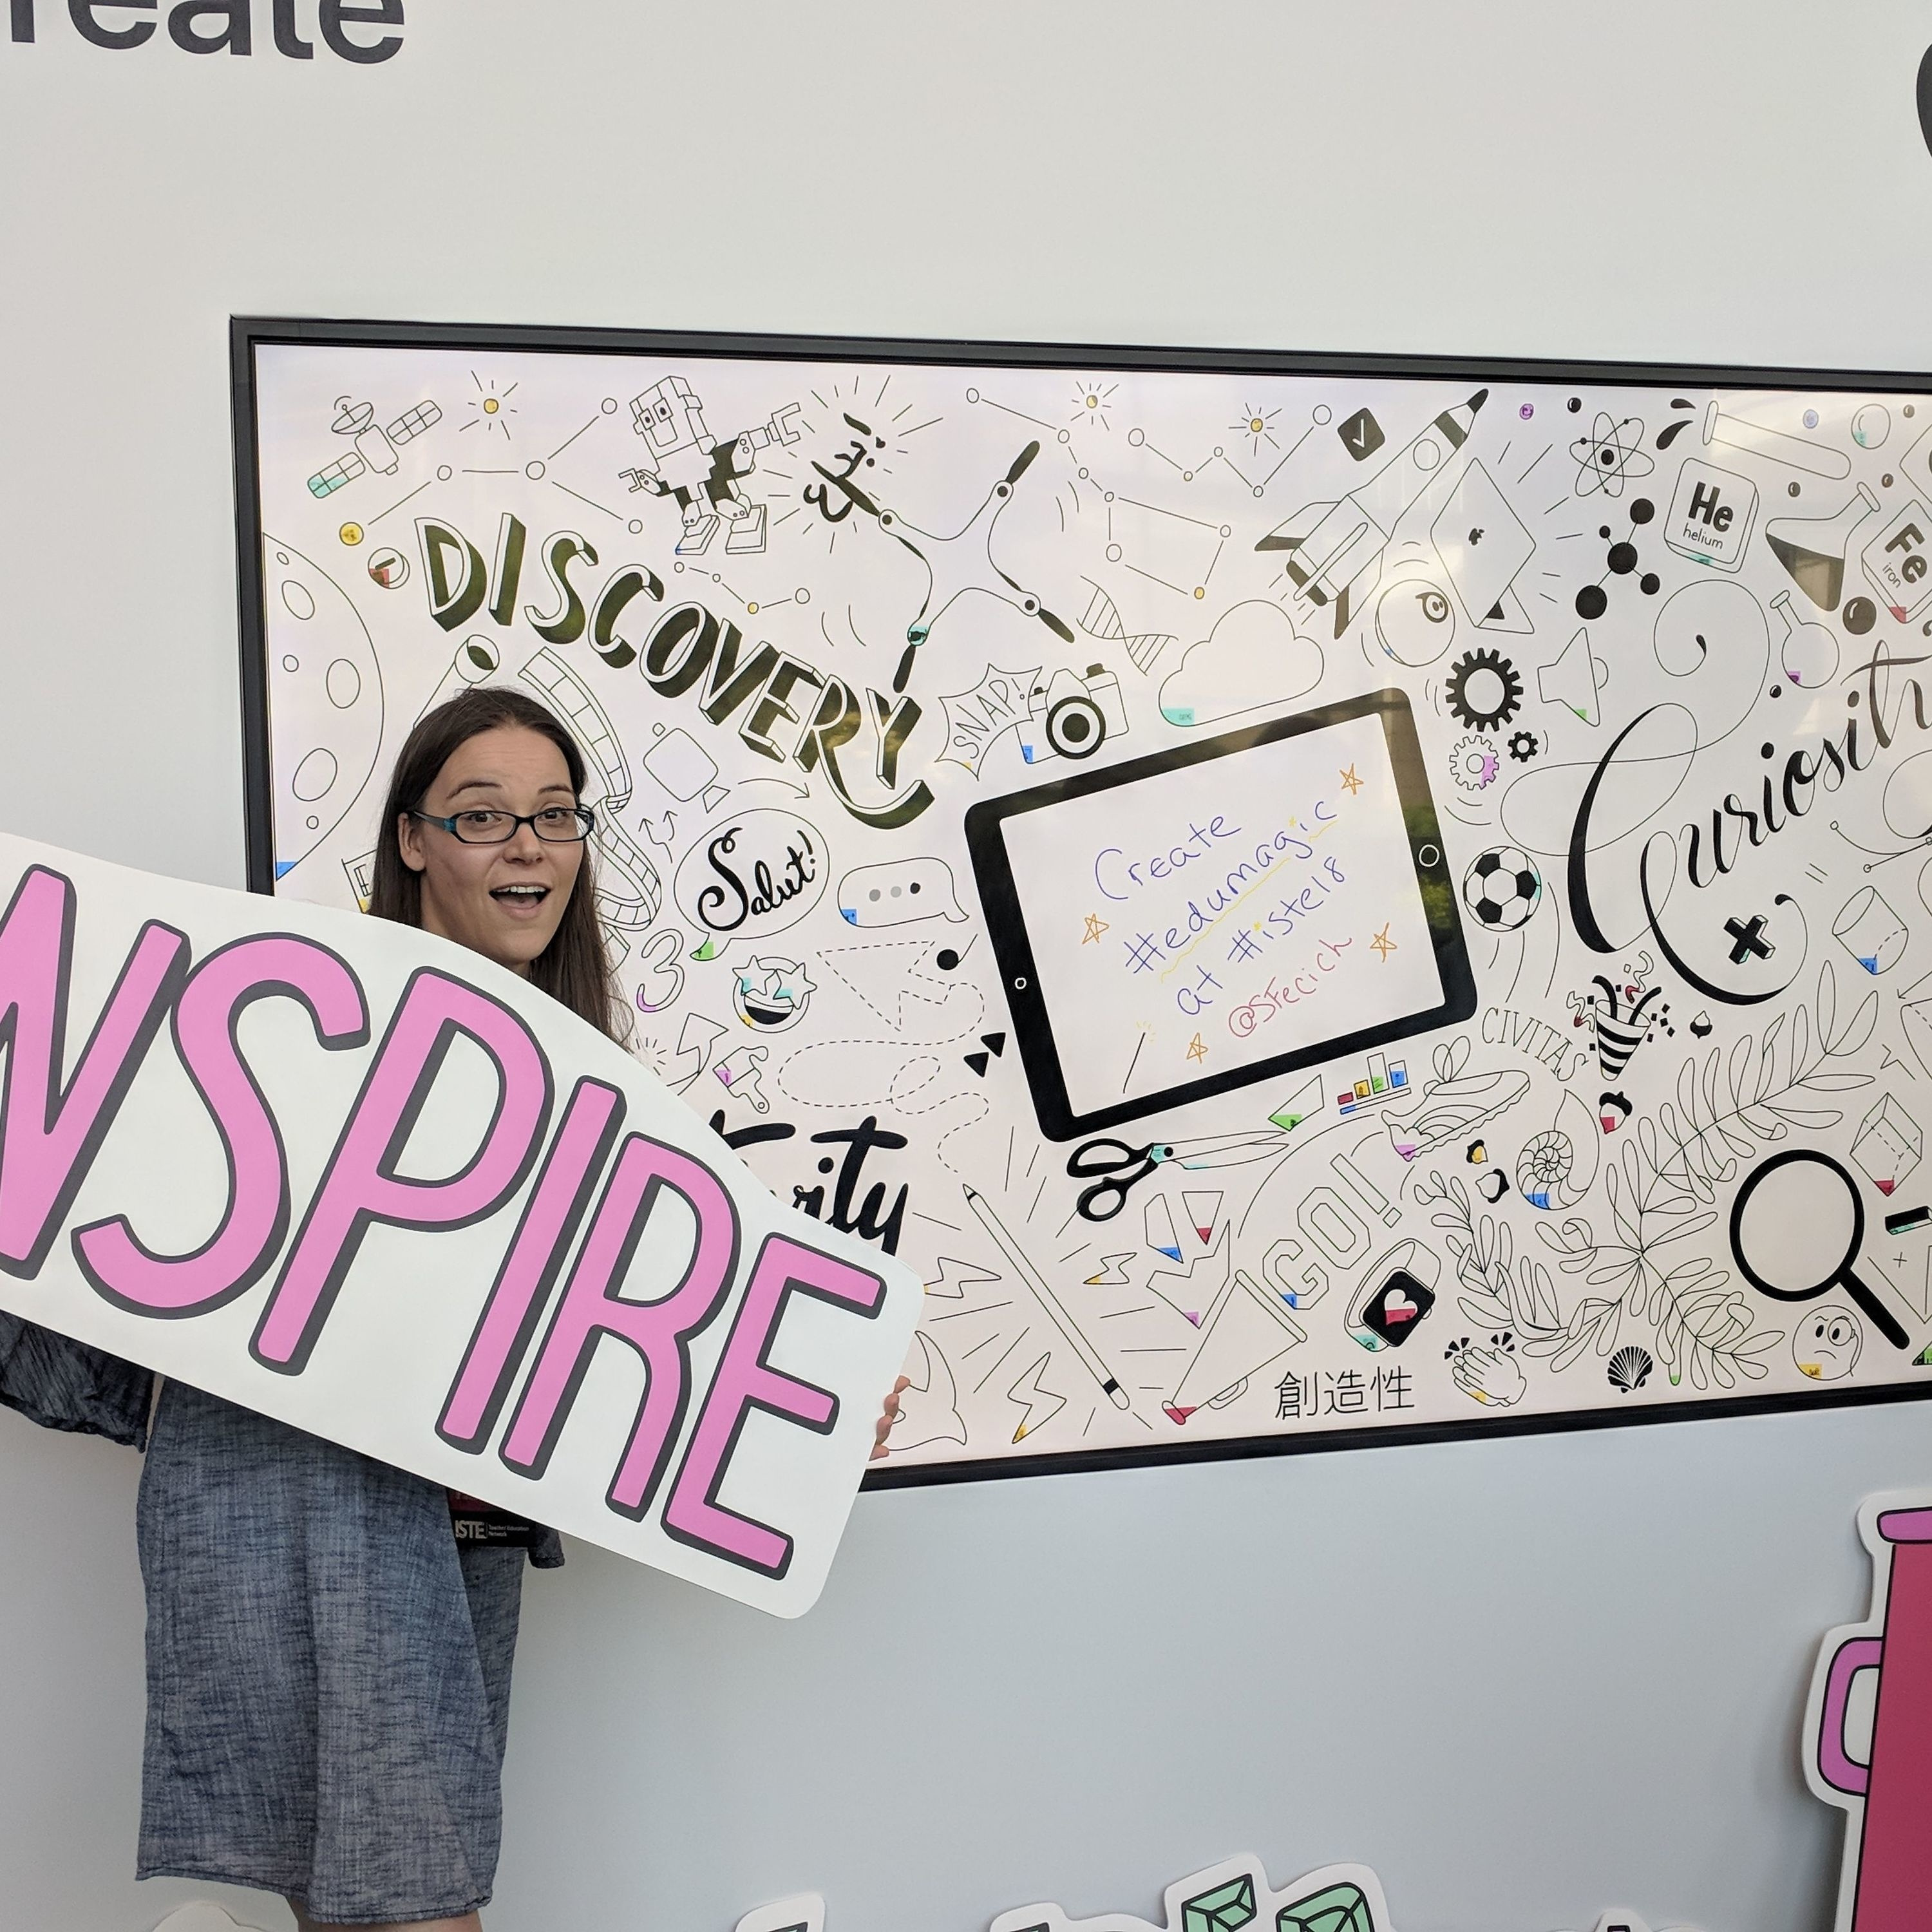 reate
DISCOVERY
He
helium
Fe
iron
SNAP!
Curiosity
Salut!
Create
#edumagic
at #iste18
@SFecich
3
CIVITAS
NSPIRE
ity
GO!
創造性
ISTE